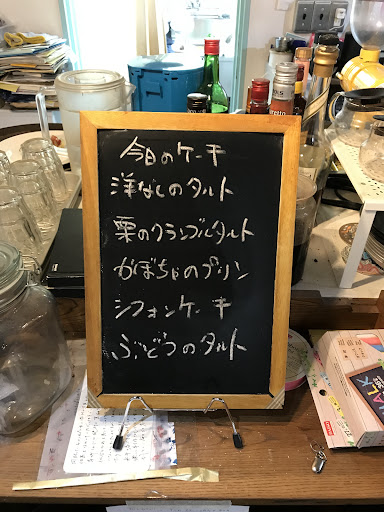 今日のケーキ
洋なしのタルト
栗のクランブルタルト
かぼちゃのプリン
シフォンケーキ
ぶどうのタルト